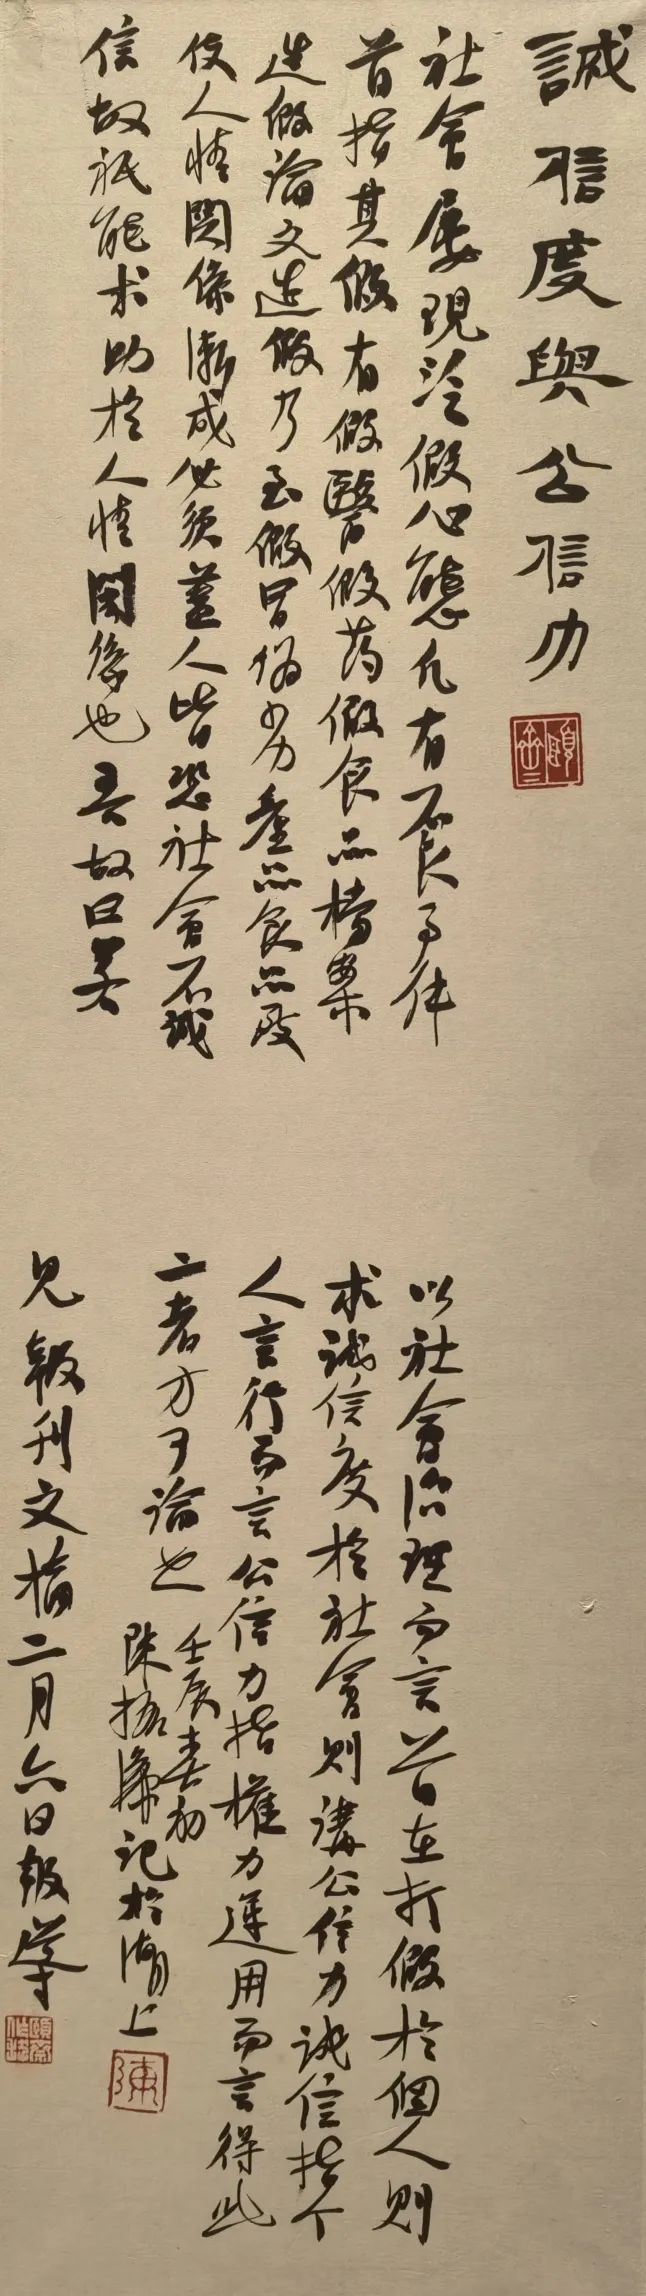 誠信度與公信力
社會屢現造假心態凡有不良事件
首指其假有假醫假药假食品檔案
造假論文造假乃至假冒偽劣產品食品反
使人情関係漸成必須蓋人皆恐社會不誠
信故祇能求助於人情関係也吾故曰若
以社會治理而言首在打假於個人則
求誠信度於社會則講公信力誠信指个
人言行而言公信力指權力運用而言得此
二者方可論也
壬辰春初
陳振濂記於湖上
陳
見報刊文稿二月六日報摹